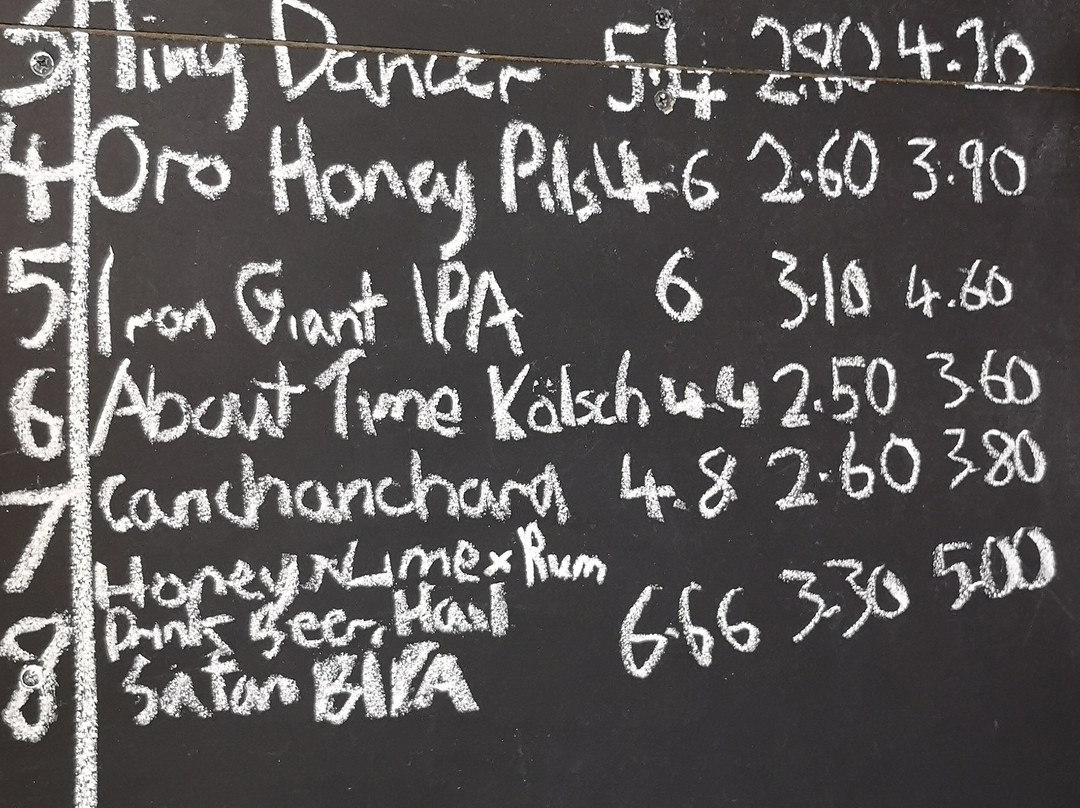 3 Tiny Dancer 5.4 2.80 4.20
4 Oro Honey Pils 4.6 2.60 3.90
5 Iron Giant IPA 6 3.10 4.60
6 About Time Kölsch 4.4 2.50 3.60
7 Canchanchara 4.8 2.60 3.80
Honey x Lime x Rum
8 Drink Beer, Hail 6.66 3.30 5.00
Satan BIPA